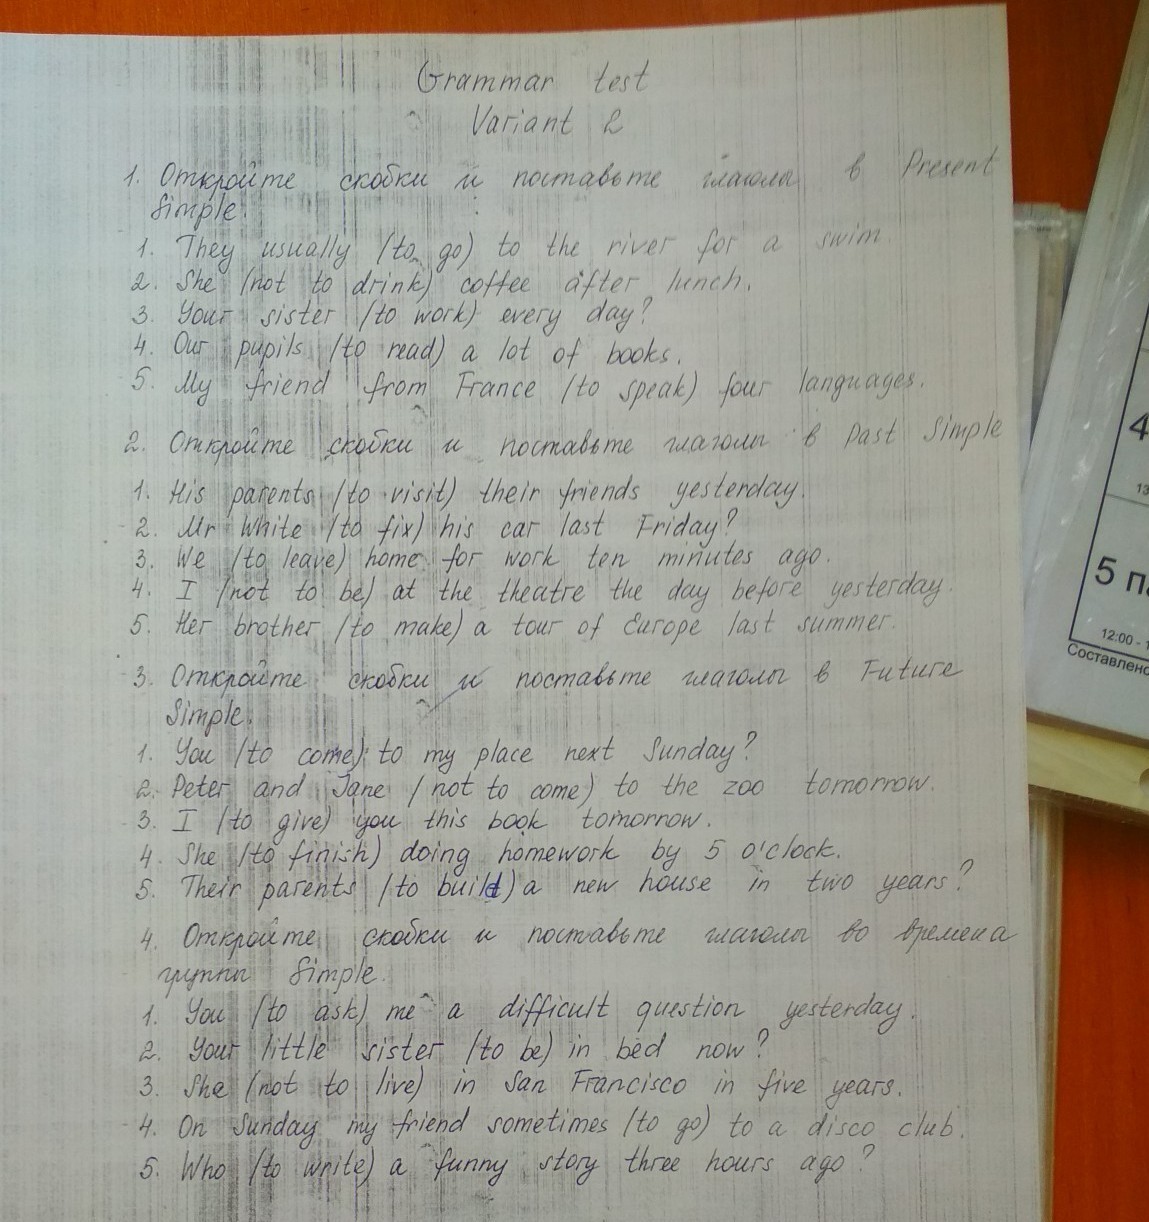 Grammar test
Variant 2
1. Откройте скобки и поставьте глаголы в Present
Simple.
1. They usually (to go) to the river for a swim.
2. She (not to drink) coffee after lunch.
3. Your sister (to work) every day?
4. Our pupils (to read) a lot of books.
5. My friend from France (to speak) four languages.
2. Откройте скобки и поставьте глаголы в Past Simple
1. His parents (to visit) their friends yesterday.
2. Mr White (to fix) his car last Friday?
3. We (to leave) home for work ten minutes ago.
4. I (not to be) at the theatre the day before yesterday.
5. Her brother (to make) a tour of Europe last summer.
3. Откройте скобки и поставьте глаголы в Future
Simple.
1. You (to come) to my place next Sunday?
2. Peter and Jane (not to come) to the zoo tomorrow.
3. I (to give) you this book tomorrow.
4. She (to finish) doing homework by 5 o'clock.
5. Their parents (to build) a new house in two years?
4. Откройте скобки и поставьте глаголы во времена
группы Simple.
1. You (to ask) me a difficult question yesterday.
2. Your little sister (to be) in bed now?
3. She (not to live) in San Francisco in five years.
4. On Sunday my friend sometimes (to go) to a disco club.
5. Who (to write) a funny story three hours ago?
4
13
5 п
12:00 - 1
Составлено